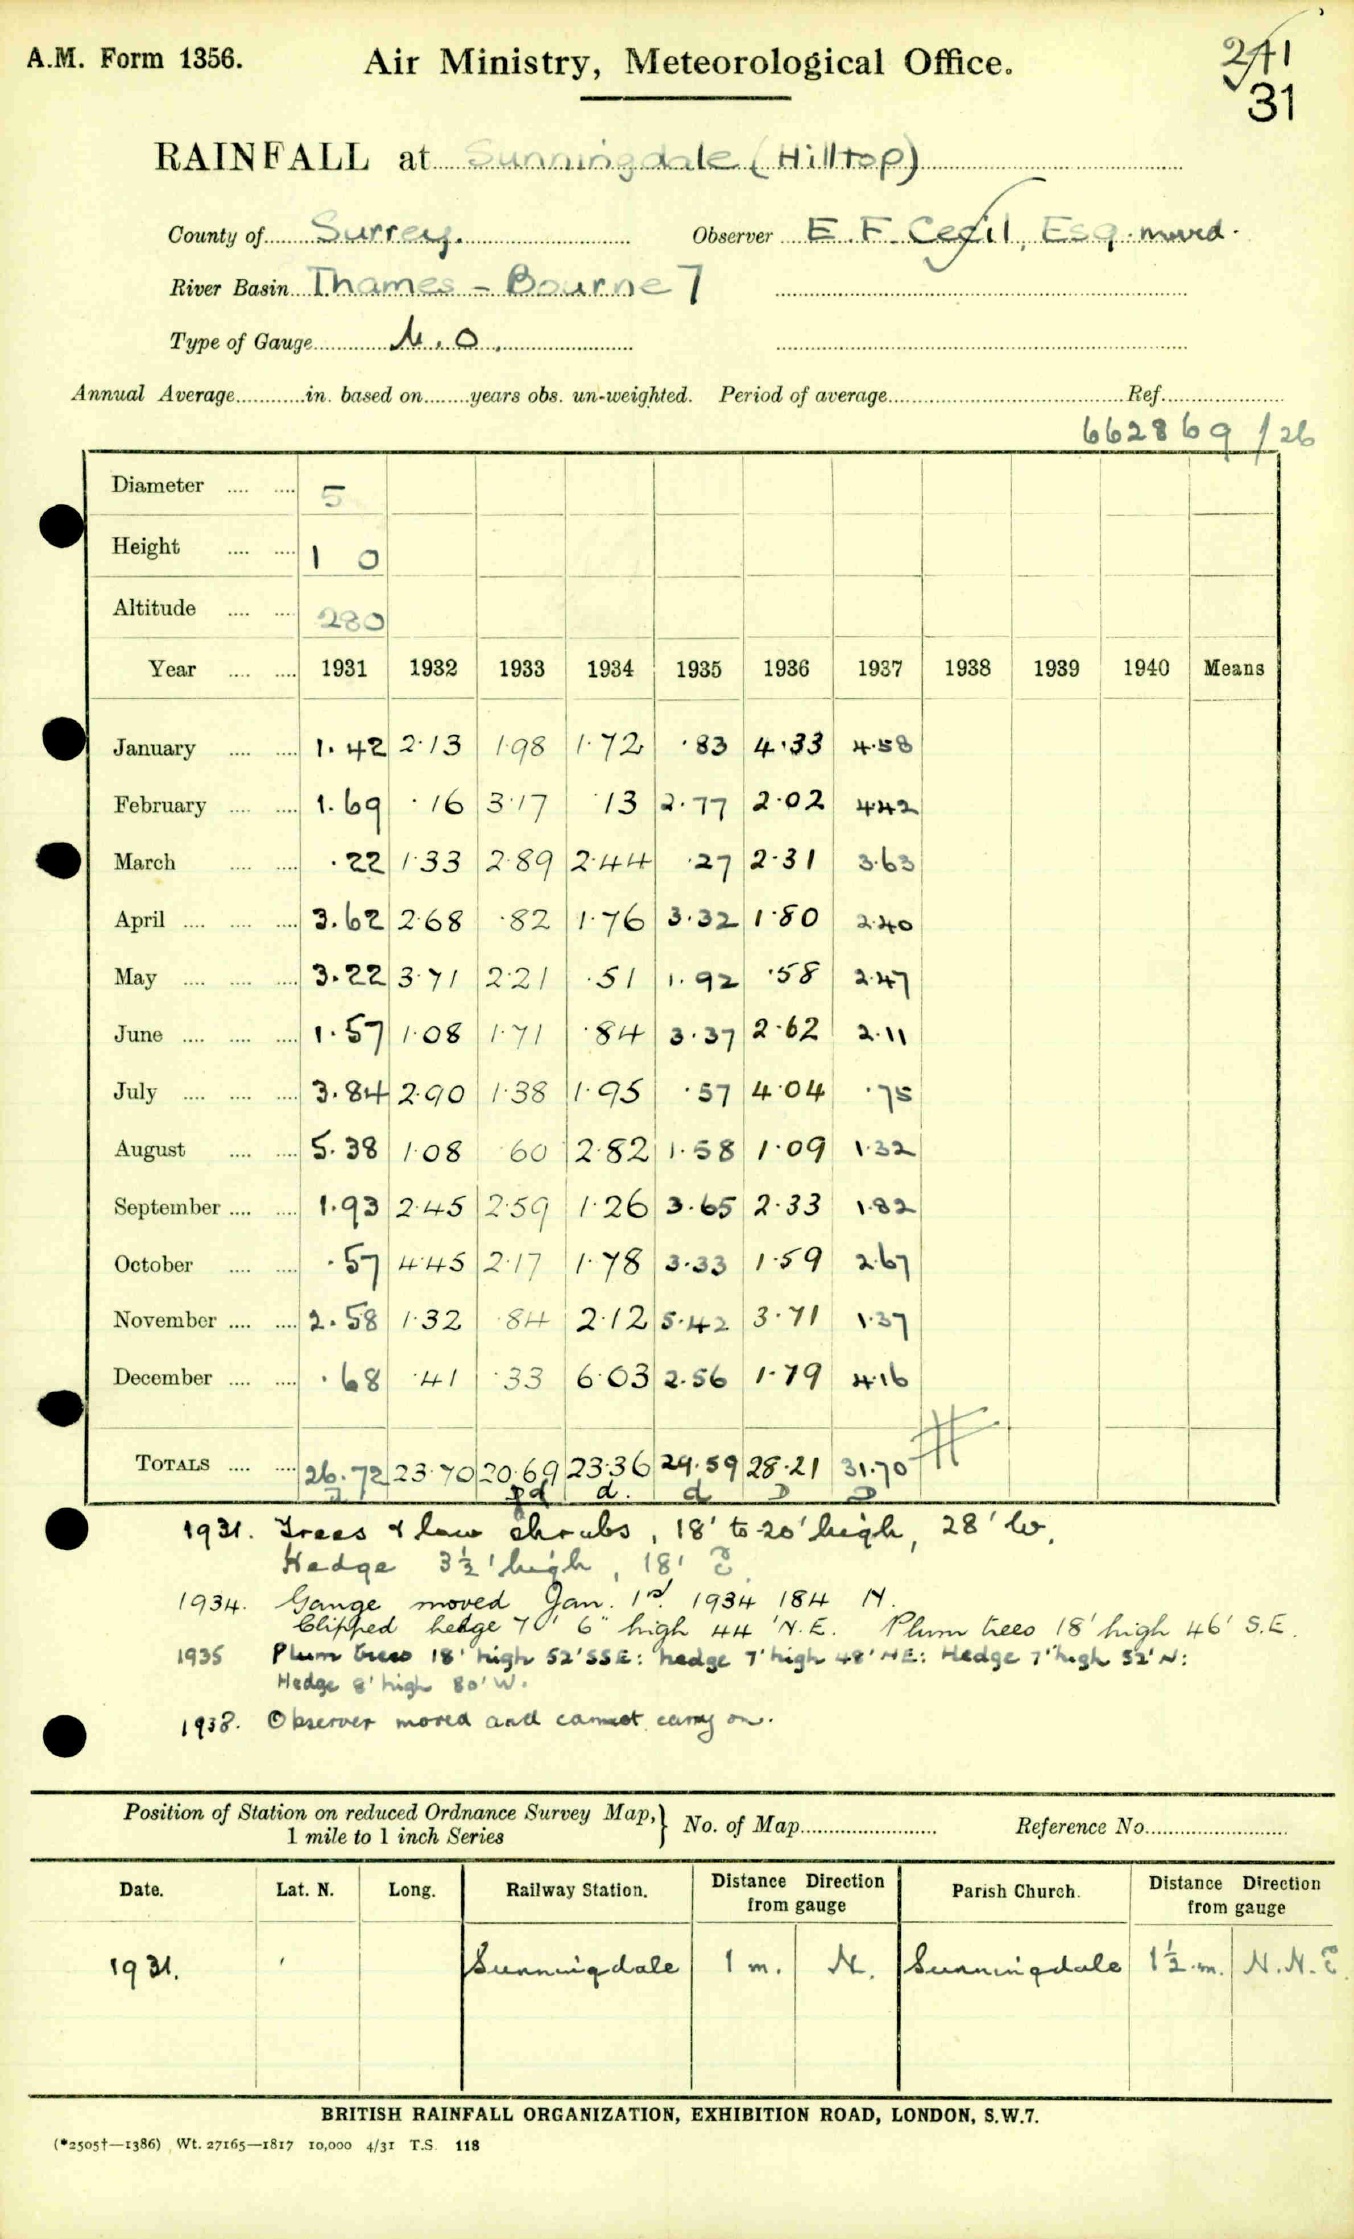 A.M. Form 1356.
Air Ministry, Meteorological Office.
31
RAINFALL at Sunningdale (Hilltop)
County of Surrey. Observer E. F. Cecil, Esq. moved.
River Basin Thames - Bourne 7
Type of Gauge M.O.
Annual Average in. based on years obs. un-weighted. Period of average Ref.
662869/26
Diameter 5
Height 1 0
Altitude 280
Year 1931 1932 1933 1934 1935 1936 1937 1938 1939 1940 Means
January 1.42 2.13 1.98 1.72 .83 4.33 4.58
February 1.69 .16 3.17 .13 2.77 2.02 4.42
March .22 1.33 2.89 2.44 .27 2.31 3.63
April 3.62 2.68 .82 1.76 3.32 1.80 2.40
May 3.22 3.71 2.21 .51 1.92 .58 2.47
June 1.57 1.08 1.71 .84 3.37 2.62 2.11
July 3.84 2.90 1.38 1.95 .57 4.04 .75
August 5.38 1.08 .60 2.82 1.58 1.09 1.32
September 1.93 2.45 2.59 1.26 3.65 2.33 1.82
October .57 4.45 2.17 1.78 3.33 1.59 2.67
November 2.58 1.32 .84 2.12 5.42 3.71 1.37
December .68 .41 .33 6.03 2.56 1.79 4.16
TOTALS 26.72 23.70 20.69 23.36 29.59 28.21 31.70
d d. d D D
1931. Trees & low shrubs, 18' to 20' high, 28' W.
Hedge 3½' high, 18' E.
1934. Gauge moved Jan. 1st. 1934 184 N.
Clipped hedge 7' 6" high 44' N.E. Plum trees 18' high 46' S.E.
1935 Plum trees 18' high 52' SSE: hedge 7' high 48' NE: Hedge 7' high 52' N:
Hedge 8' high 80' W.
1938. Observer moved and cannot carry on.
Position of Station on reduced Ordnance Survey Map, 1 mile to 1 inch Series } No. of Map Reference No.
Date. Lat. N. Long. Railway Station. Distance Direction from gauge Parish Church. Distance Direction from gauge
1931. Sunningdale 1 m. N. Sunningdale 1½ m. N.N.E
BRITISH RAINFALL ORGANIZATION, EXHIBITION ROAD, LONDON, S.W.7.
(*2505†—1386) Wt. 27165—1817 10,000 4/31 T.S. 118